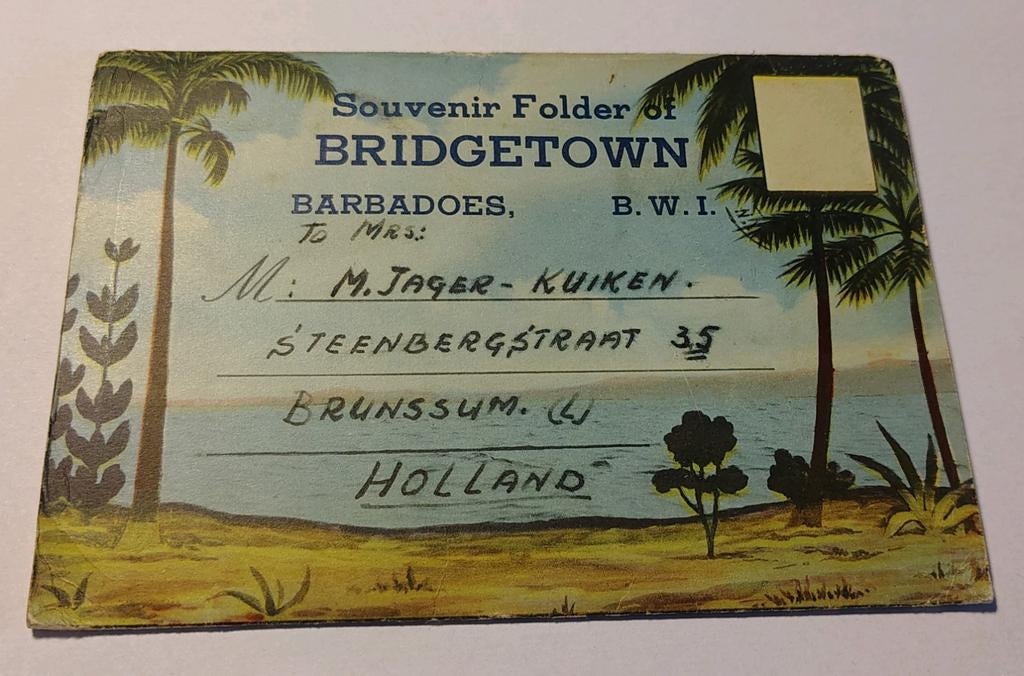 Souvenir Folder of
BRIDGETOWN
BARBADOES, B. W. I.
To MRS:
M: M. JAGER - KUIKEN.
STEENBERGSTRAAT 35
BRUNSSUM. (L)
HOLLAND